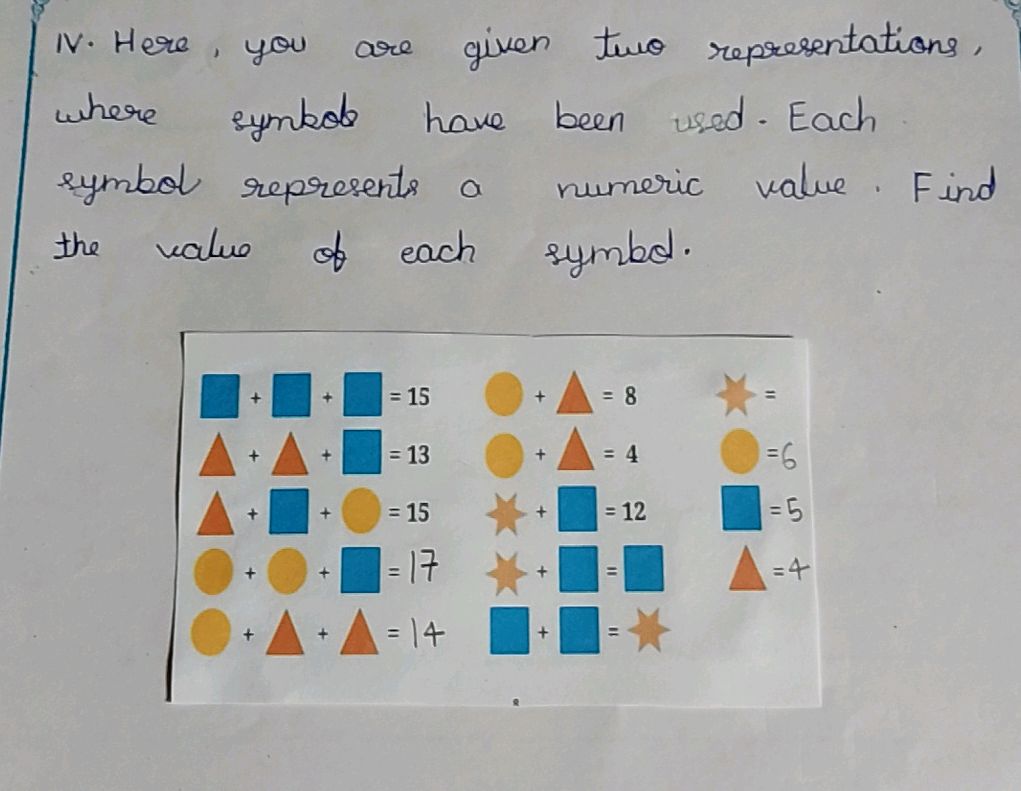 IV. Here, you are given two representations,
where symbols have been used. Each
symbol represents a numeric value. Find
the value of each symbol.
+ + = 15
+ + = 13
+ + = 15
+ + = 17
+ + = 14
+ = 8
+ = 4
+ = 12
+ =
+ =
=
= 6
= 5
= 4